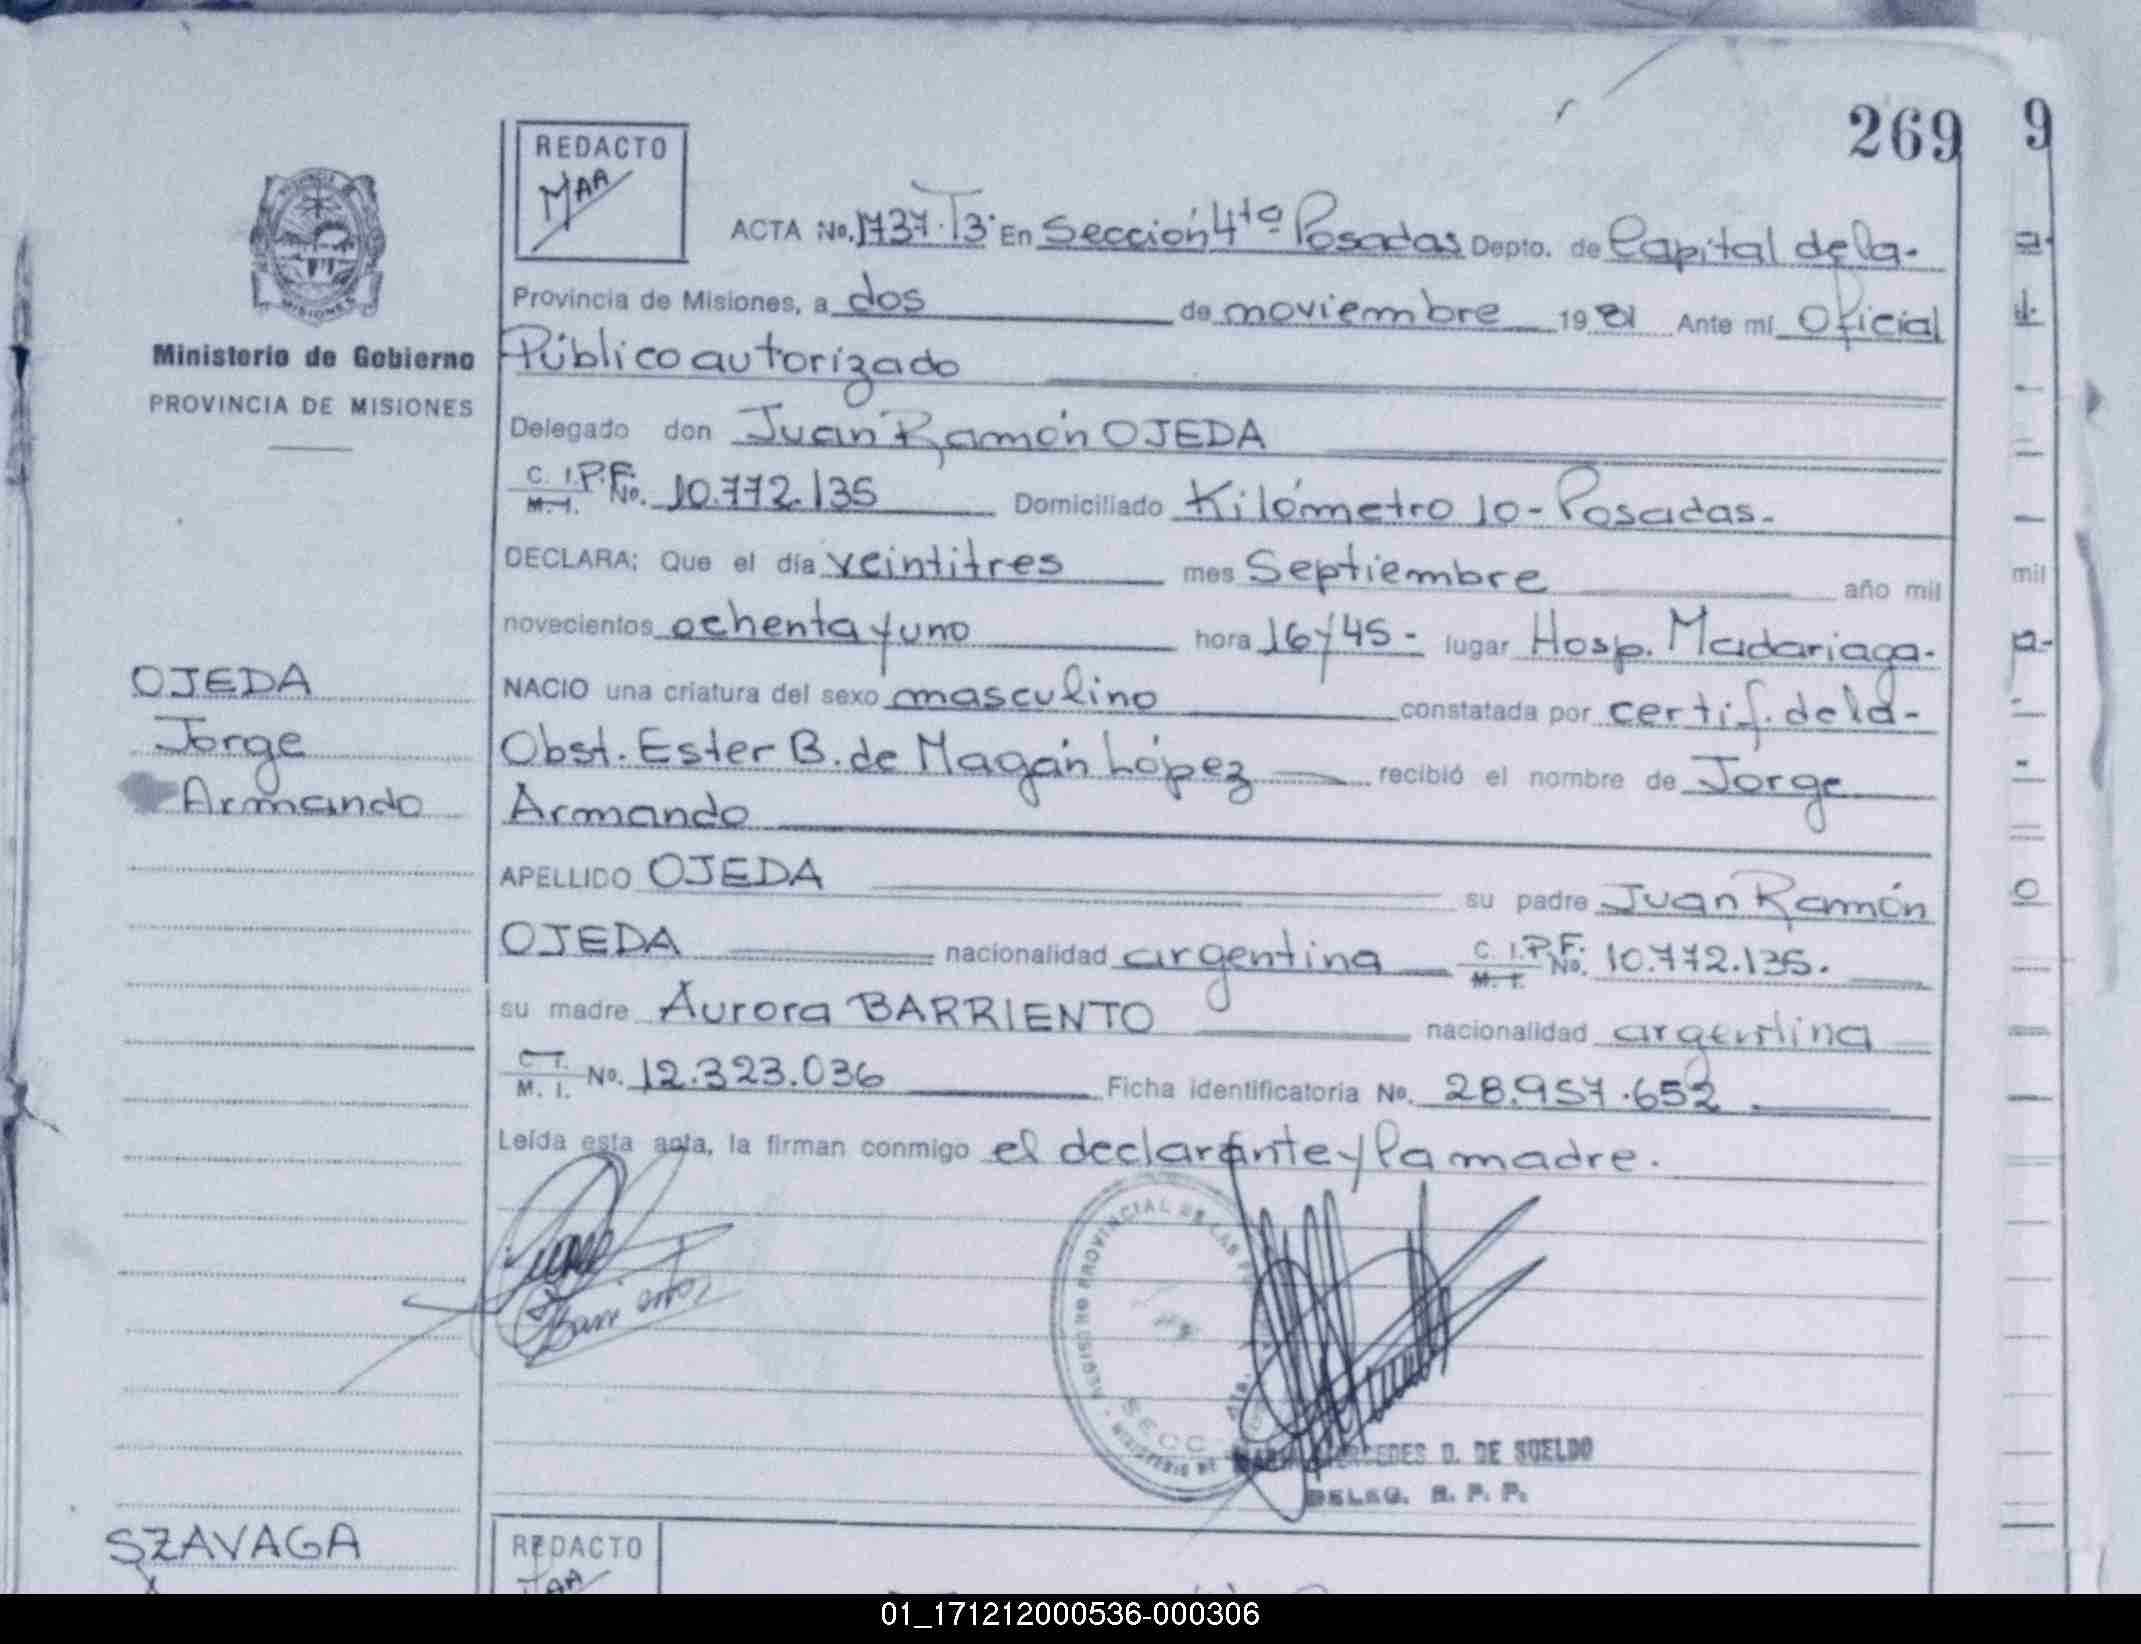 269
9
REDACTO
MAA
ACTA No. 1737·T3· En Sección 4ta Posadas Depto. de Capital de la-
Provincia de Misiones, a dos de noviembre 1981 Ante mí Oficial
Público autorizado
Delegado don Juan Ramón OJEDA
C. I.P.F. No. 10.772.135 Domiciliado Kilómetro 10-Posadas-
M. I.
DECLARA; Que el día veintitres mes Septiembre año mil
novecientos ochenta y uno hora 16y45- lugar Hosp. Madariaga-
NACIO una criatura del sexo masculino constatada por certif. de la-
Obst. Ester B. de Magán López recibió el nombre de Jorge
Armando
APELLIDO OJEDA su padre Juan Ramón
OJEDA nacionalidad argentina C. I.P.F. No. 10.772.135.
M. I.
su madre Aurora BARRIENTO nacionalidad argentina
C. I.
M. I. No. 12.323.036 Ficha identificatoria No. 28.957.652
Leída esta acta, la firman conmigo el declarante y la madre.
MISIONES
Ministerio de Gobierno
PROVINCIA DE MISIONES
OJEDA
Jorge
Armando
mil
REGISTRO PROVINCIAL DE LAS
SECC
MINISTERIO DE
MERCEDES D. DE SUELDO
DELEG. R. P. P.
SZAVAGA
REDACTO
01_171212000536-000306